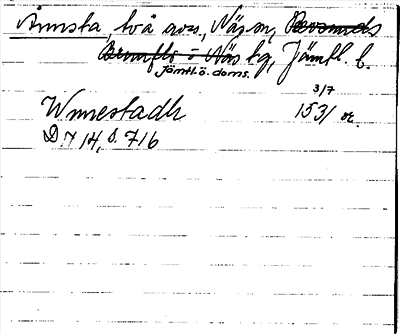 Ännsta, två avs., Näs sn, Revsunds
Brunflo o Näs tg, Jämtl. l.
Jämtl.ö. doms.
Wnnestadh 3/7 1531 or.
D.7 14, s. 716